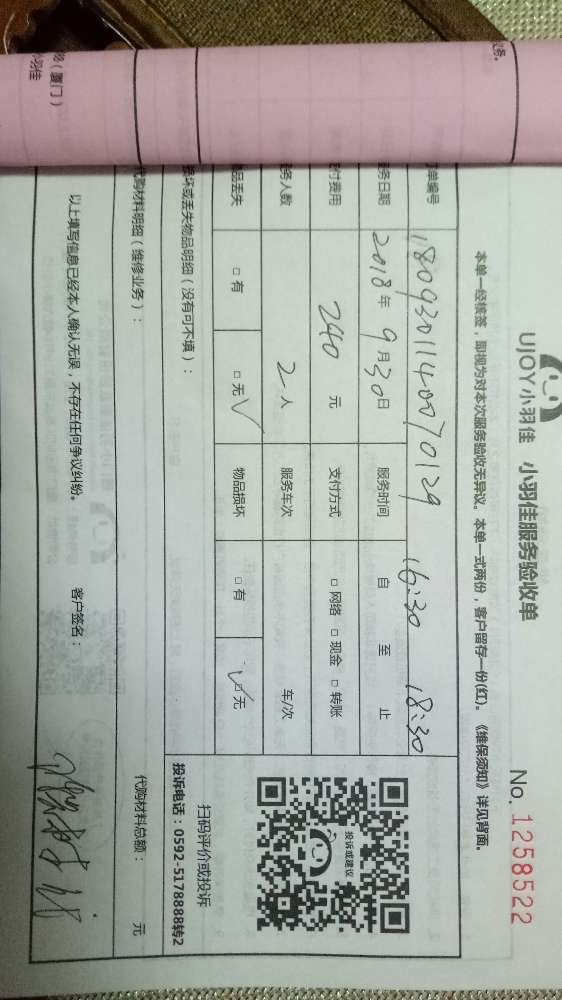 UJOY小羽佳 小羽佳服务验收单
No. 1258522
本单一经核签，即视为对本次服务验收无异议。本单一式两份，客户留存一份(红)。《维保须知》详见背面。
订单编号 1809301140070129
务日期 2018年9月30日 服务时间 16:30 自 至 18:30 止
付费用 240 元 支付方式 □ 网络 □ 现金 □ 转账
务人数 2 人 服务车次 车/次
品丢失 □ 有 □ 无 √ 物品损坏 □ 有 □ 无 √
损坏或丢失物品明细（没有可不填）：
投诉或建议
扫码评价或投诉
投诉电话：0592-5178888转2
代购材料明细（维修业务）：
代购材料总额： 元
以上填写信息已经本人确认无误，不存在任何争议纠纷。 客户签名：
务。
（厦门）
小羽佳